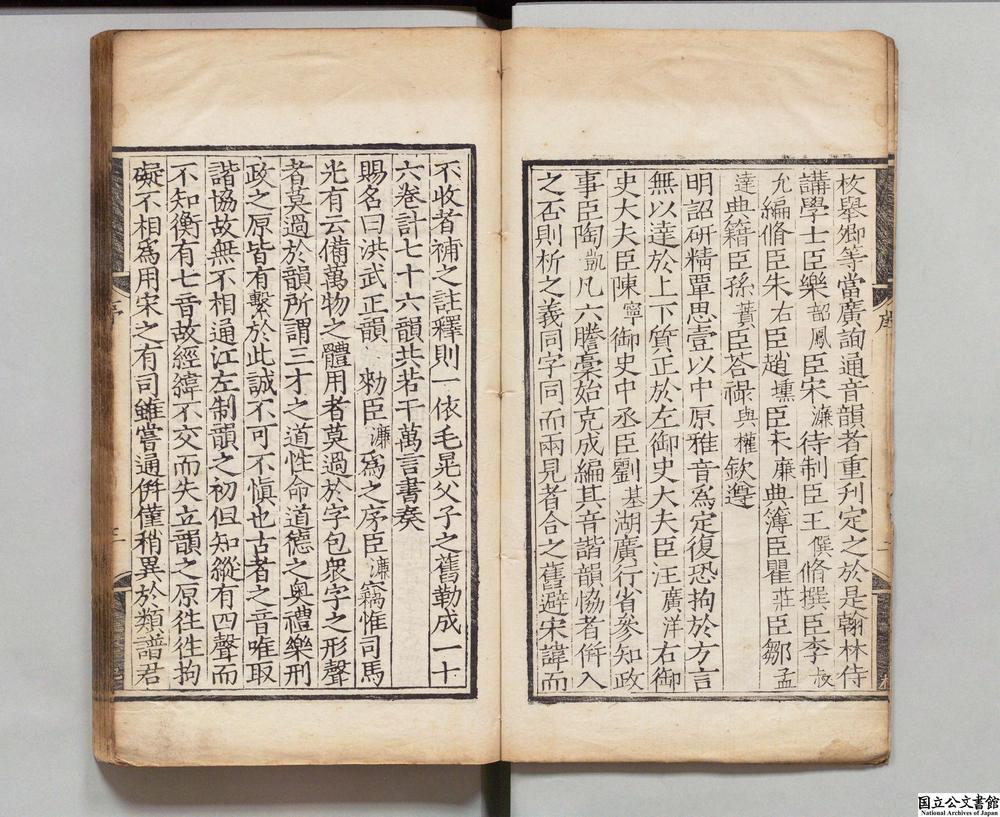 枚舉卿等當廣詢通音韻者重刋定之於是翰林侍
講學士臣樂韶鳳臣宋濂待制臣王僎脩撰臣李叔
允編脩臣朱右臣趙壎臣朱廉典簿臣瞿莊臣鄒孟
達典籍臣孫蕡臣荅祿與權欽遵
明詔研精覃思壹以中原雅音爲定復恐拘於方言
無以達於上下質正於左御史大夫臣汪廣洋右御
史大夫臣陳寧御史中丞臣劉基湖廣行省參知政
事臣陶凱凡六謄藁始克成編其音諧韻恊者倂入
之否則析之義同字同而兩見者合之舊避宋諱而
序
不收者補之註釋則一依毛晃父子之舊勒成一十
六卷計七十六韻共若干萬言書奏
賜名曰洪武正韻 勑臣濂爲之序臣濂竊惟司馬
光有云備萬物之體用者莫過於字包衆字之形聲
者莫過於韻所謂三才之道性命道德之奧禮樂刑
政之原皆有繫於此誠不可不愼也古者之音唯取
諧協故無不相通江左制韻之初但知縱有四聲而
不知衡有七音故經緯不交而失立韻之原徃徃拘
礙不相爲用宋之有司雖嘗通倂僅稍異於類譜君
国立公文書館
National Archives of Japan